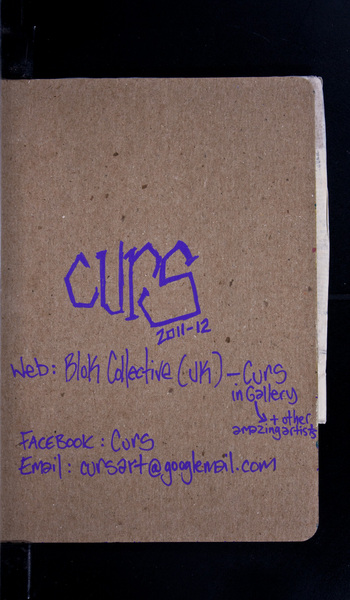 CURS
2011-12
Web: Blok Collective (UK) - Curs
in Gallery
+ other
amazing artists
FACEBOOK: Curs
Email: cursart@googlemail.com